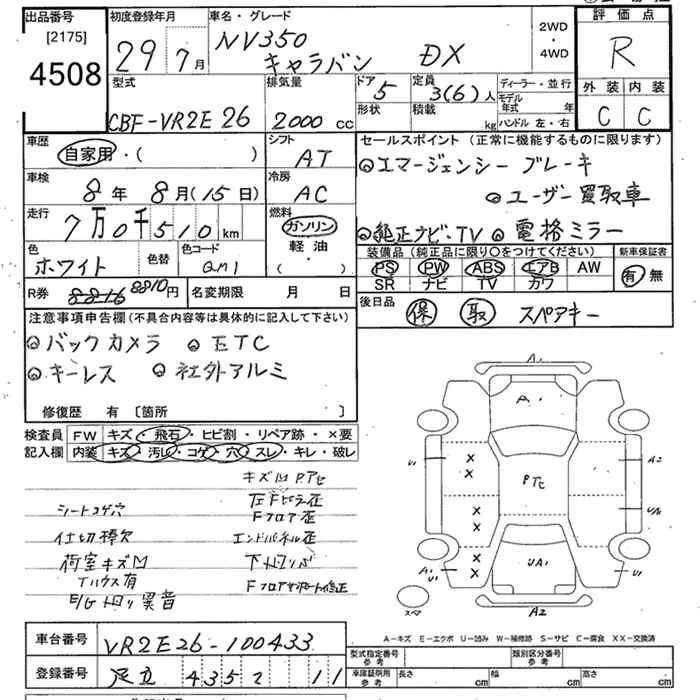 出品番号
[2175]
4508
初度登録年月
29年7月
車名・グレード
NV350
キャラバン DX
2WD
・
4WD
評価点
R
外装 内装
C C
型式
CBF-VR2E26
排気量
2000cc
ドア
5
形状
定員
3(6)人
積載
kg
ディーラー・並行
モデル年式 年
ハンドル 左・右
車歴
自家用・( )
シフト
AT
車検
8年8月(15日)
冷房
AC
走行
7万0千510km
燃料
ガソリン
軽油・
( )
色
ホワイト
色替
色コード
QM1
R券 8816 8810円
名変期限 月 日
セールスポイント(正常に機能するものに限ります)
エマージェンシーブレーキ
ユーザー買取車
純正ナビ・TV
電格ミラー
装備品(純正品に限り○をつけてください)
新車保証書
PS PW ABS エアB AW
SR ナビ TV カワ
有 無
後日品
保 取 スペアキー
注意事項申告欄(不具合内容等は具体的に記入して下さい)
バックカメラ ETC
キーレス 社外アルミ
修復歴 有 〔箇所 〕
検査員
記入欄
FW キズ・飛石・ヒビ割・リペア跡・×要
内装 キズ・汚レ・コゲ・穴・スレ・キレ・破レ
シートコゲ穴
仕切棒欠
荷室キズM
Tハウス有
E/G回り異音
左Fピラ歪
Fフロア歪
エンドパネル歪
Fフロアサポート修正
A1
A1
U1
A2
PTC
UA1
A1
U1
U1
A2
スペア
A-キズ E-エクボ U-凹み W-補修跡 S-サビ C-腐食 XX-交換済
車台番号
VR2E26-100433
登録番号
足立 4352 11
型式指定番号
参考
類別区分番号
参考
車庫証明用
参考
長さ cm
幅 cm
高さ cm